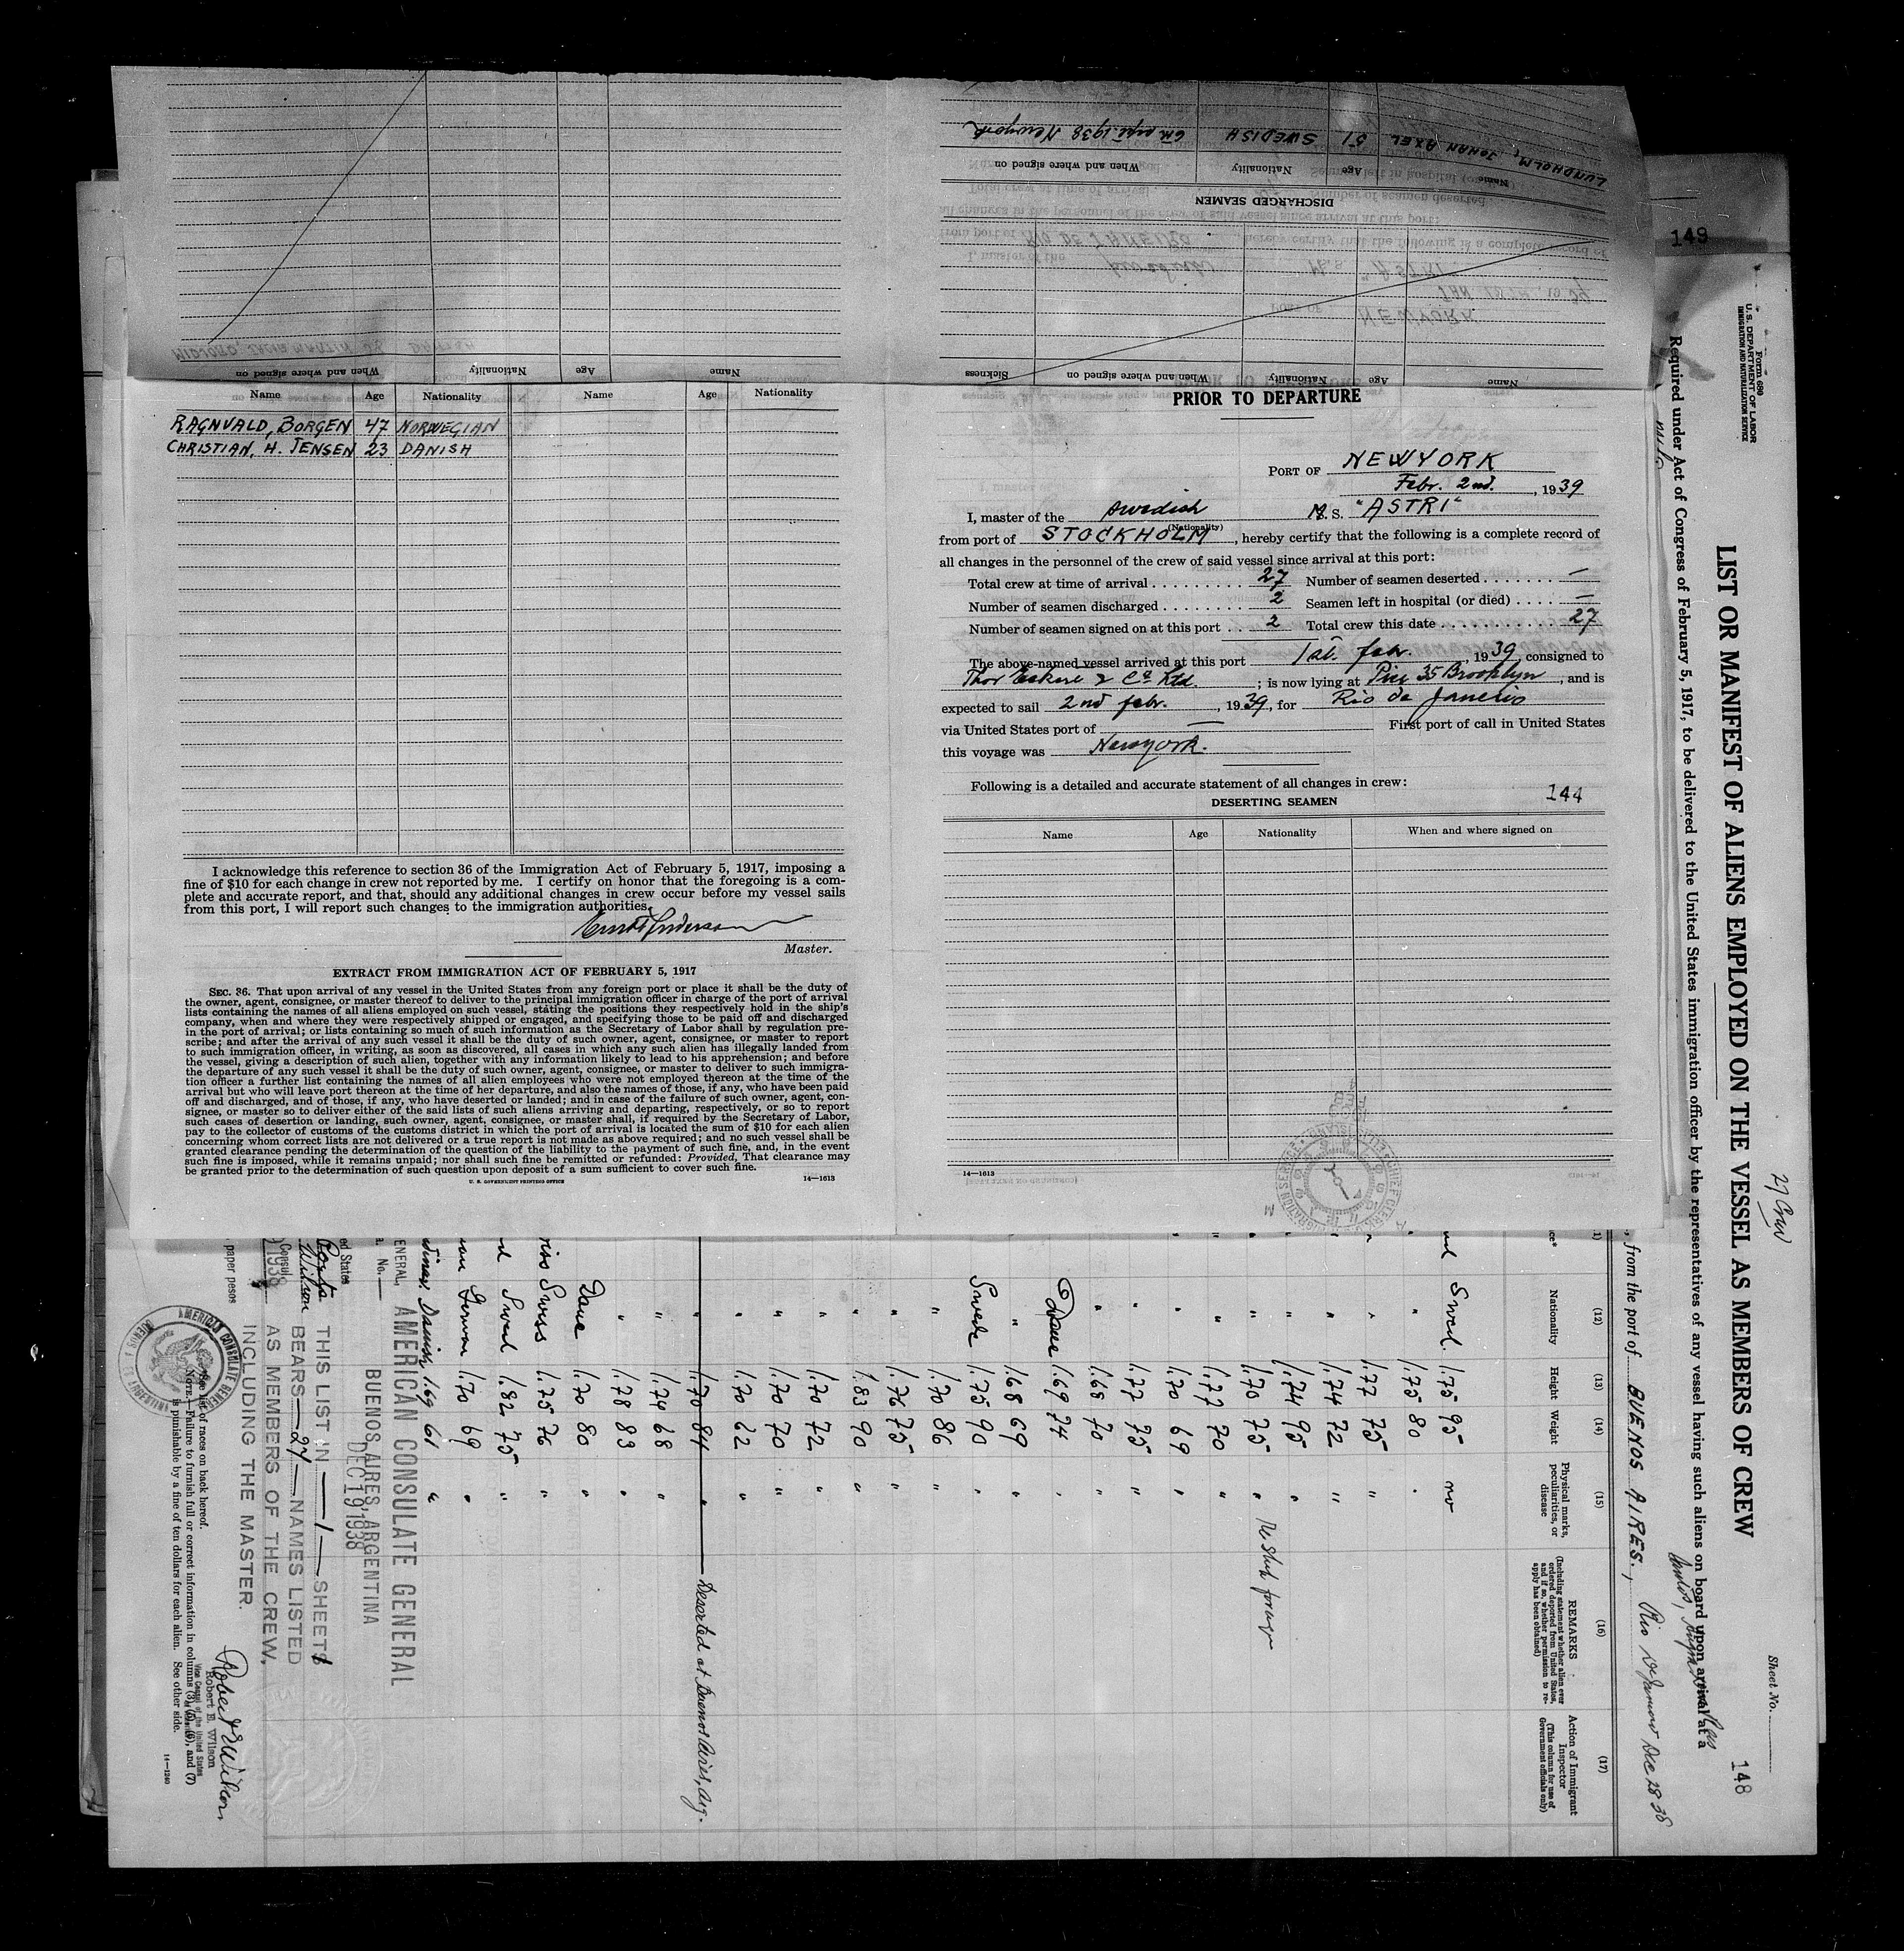 DISCHARGED SEAMEN
Name Age Nationality When and where signed on
LUNDHOLM, JOHAN AXEL 51 SWEDISH 6th sept. 1938 Newyork
Name Age Nationality When and where signed on Sickness
Name Age Nationality When and where signed on
Name Age Nationality Name Age Nationality
RAGNVALD, BORGEN 47 NORWEGIAN
CHRISTIAN, H. JENSEN 23 DANISH
I acknowledge this reference to section 36 of the Immigration Act of February 5, 1917, imposing a
fine of $10 for each change in crew not reported by me. I certify on honor that the foregoing is a com-
plete and accurate report, and that, should any additional changes in crew occur before my vessel sails
from this port, I will report such changes to the immigration authorities.
Master.
EXTRACT FROM IMMIGRATION ACT OF FEBRUARY 5, 1917
SEC. 36. That upon arrival of any vessel in the United States from any foreign port or place it shall be the duty of
the owner, agent, consignee, or master thereof to deliver to the principal immigration officer in charge of the port of arrival
lists containing the names of all aliens employed on such vessel, stating the positions they respectively hold in the ship's
company, when and where they were respectively shipped or engaged, and specifying those to be paid off and discharged
in the port of arrival; or lists containing so much of such information as the Secretary of Labor shall by regulation pre-
scribe; and after the arrival of any such vessel it shall be the duty of such owner, agent, consignee, or master to report
to such immigration officer, in writing, as soon as discovered, all cases in which any such alien has illegally landed from
the vessel, giving a description of such alien, together with any information likely to lead to his apprehension; and before
the departure of any such vessel it shall be the duty of such owner, agent, consignee, or master to deliver to such immigra-
tion officer a further list containing the names of all alien employees who were not employed thereon at the time of the
arrival but who will leave port thereon at the time of her departure, and also the names of those, if any, who have been paid
off and discharged, and of those, if any, who have deserted or landed; and in case of the failure of such owner, agent, con-
signee, or master so to deliver either of the said lists of such aliens arriving and departing, respectively, or so to report
such cases of desertion or landing, such owner, agent, consignee, or master shall, if required by the Secretary of Labor,
pay to the collector of customs of the customs district in which the port of arrival is located the sum of $10 for each alien
concerning whom correct lists are not delivered or a true report is not made as above required; and no such vessel shall be
granted clearance pending the determination of the question of the liability to the payment of such fine, and, in the event
such fine is imposed, while it remains unpaid; nor shall such fine be remitted or refunded: Provided, That clearance may
be granted prior to the determination of such question upon deposit of a sum sufficient to cover such fine.
U. S. GOVERNMENT PRINTING OFFICE 14—1613
PRIOR TO DEPARTURE
PORT OF NEWYORK
Febr. 2nd. , 1939
I, master of the Swedish M.S. "ASTRI"
(Nationality)
from port of STOCKHOLM , hereby certify that the following is a complete record of
all changes in the personnel of the crew of said vessel since arrival at this port:
Total crew at time of arrival 27 Number of seamen deserted —
Number of seamen discharged 2 Seamen left in hospital (or died) —
Number of seamen signed on at this port 2 Total crew this date 27
The above-named vessel arrived at this port 1st. febr. , 1939, consigned to
Thor Eckert & Co Ltd. ; is now lying at Pier 35 Brooklyn , and is
expected to sail 2nd febr. , 1939, for Rio de Janeiro
via United States port of — First port of call in United States
this voyage was Newyork.
Following is a detailed and accurate statement of all changes in crew:
144
DESERTING SEAMEN
Name Age Nationality When and where signed on
14—1613
149
Form 680
U. S. DEPARTMENT OF LABOR
IMMIGRATION AND NATURALIZATION SERVICE
Sheet No.
148
27 Crew
LIST OR MANIFEST OF ALIENS EMPLOYED ON THE VESSEL AS MEMBERS OF CREW
Required under Act of Congress of February 5, 1917, to be delivered to the United States immigration officer by the representatives of any vessel having such aliens on board upon arrival at a
, from the port of BUENOS AIRES, Rio D Janeiro Dec 28 38
(12) (13) (14) (15) (16) (17)
Nationality Height Weight Physical marks, peculiarities, or disease
REMARKS
(Including statement whether alien ever ordered deported from United States, and if so, whether permission to re-apply has been obtained)
Action of Immigrant Inspector
(This column for use of Government officials only)
Swed. 1.75 95 no
" 1.75 80 "
" 1.77 75 "
" 1.74 72 "
" 1.74 95 "
" 1.70 75 "
" 1.77 70 "
" 1.70 69 "
" 1.77 75 "
" 1.68 70 "
Dane 1.69 74 "
" 1.68 69 "
Swede 1.75 90 "
" 1.70 86 "
" 1.76 75 "
" 1.83 90 "
" 1.70 72 "
" 1.70 70 "
" 1.70 62 "
" 1.70 84 " Deserted at Buenos Aires, Arg.
" 1.74 68 "
" 1.78 83 "
Dane 1.70 80 "
Swiss 1.75 76 "
Swed 1.82 75 "
German 1.70 69 "
Danish 1.69 61 "
AMERICAN CONSULATE GENERAL
BUENOS AIRES, ARGENTINA
DEC 19 1938
THIS LIST IN —1— SHEET
BEARS —27— NAMES LISTED
AS MEMBERS OF THE CREW,
INCLUDING THE MASTER.
paper pesos
Robert E. Wilson
Robert E. Wilson
Vice Consul of the United States
See list of races on back hereof.
NOTE.—Failure to furnish full or correct information in columns (3), (5), (6), and (7)
is punishable by a fine of ten dollars for each alien. See other side.
14—1240